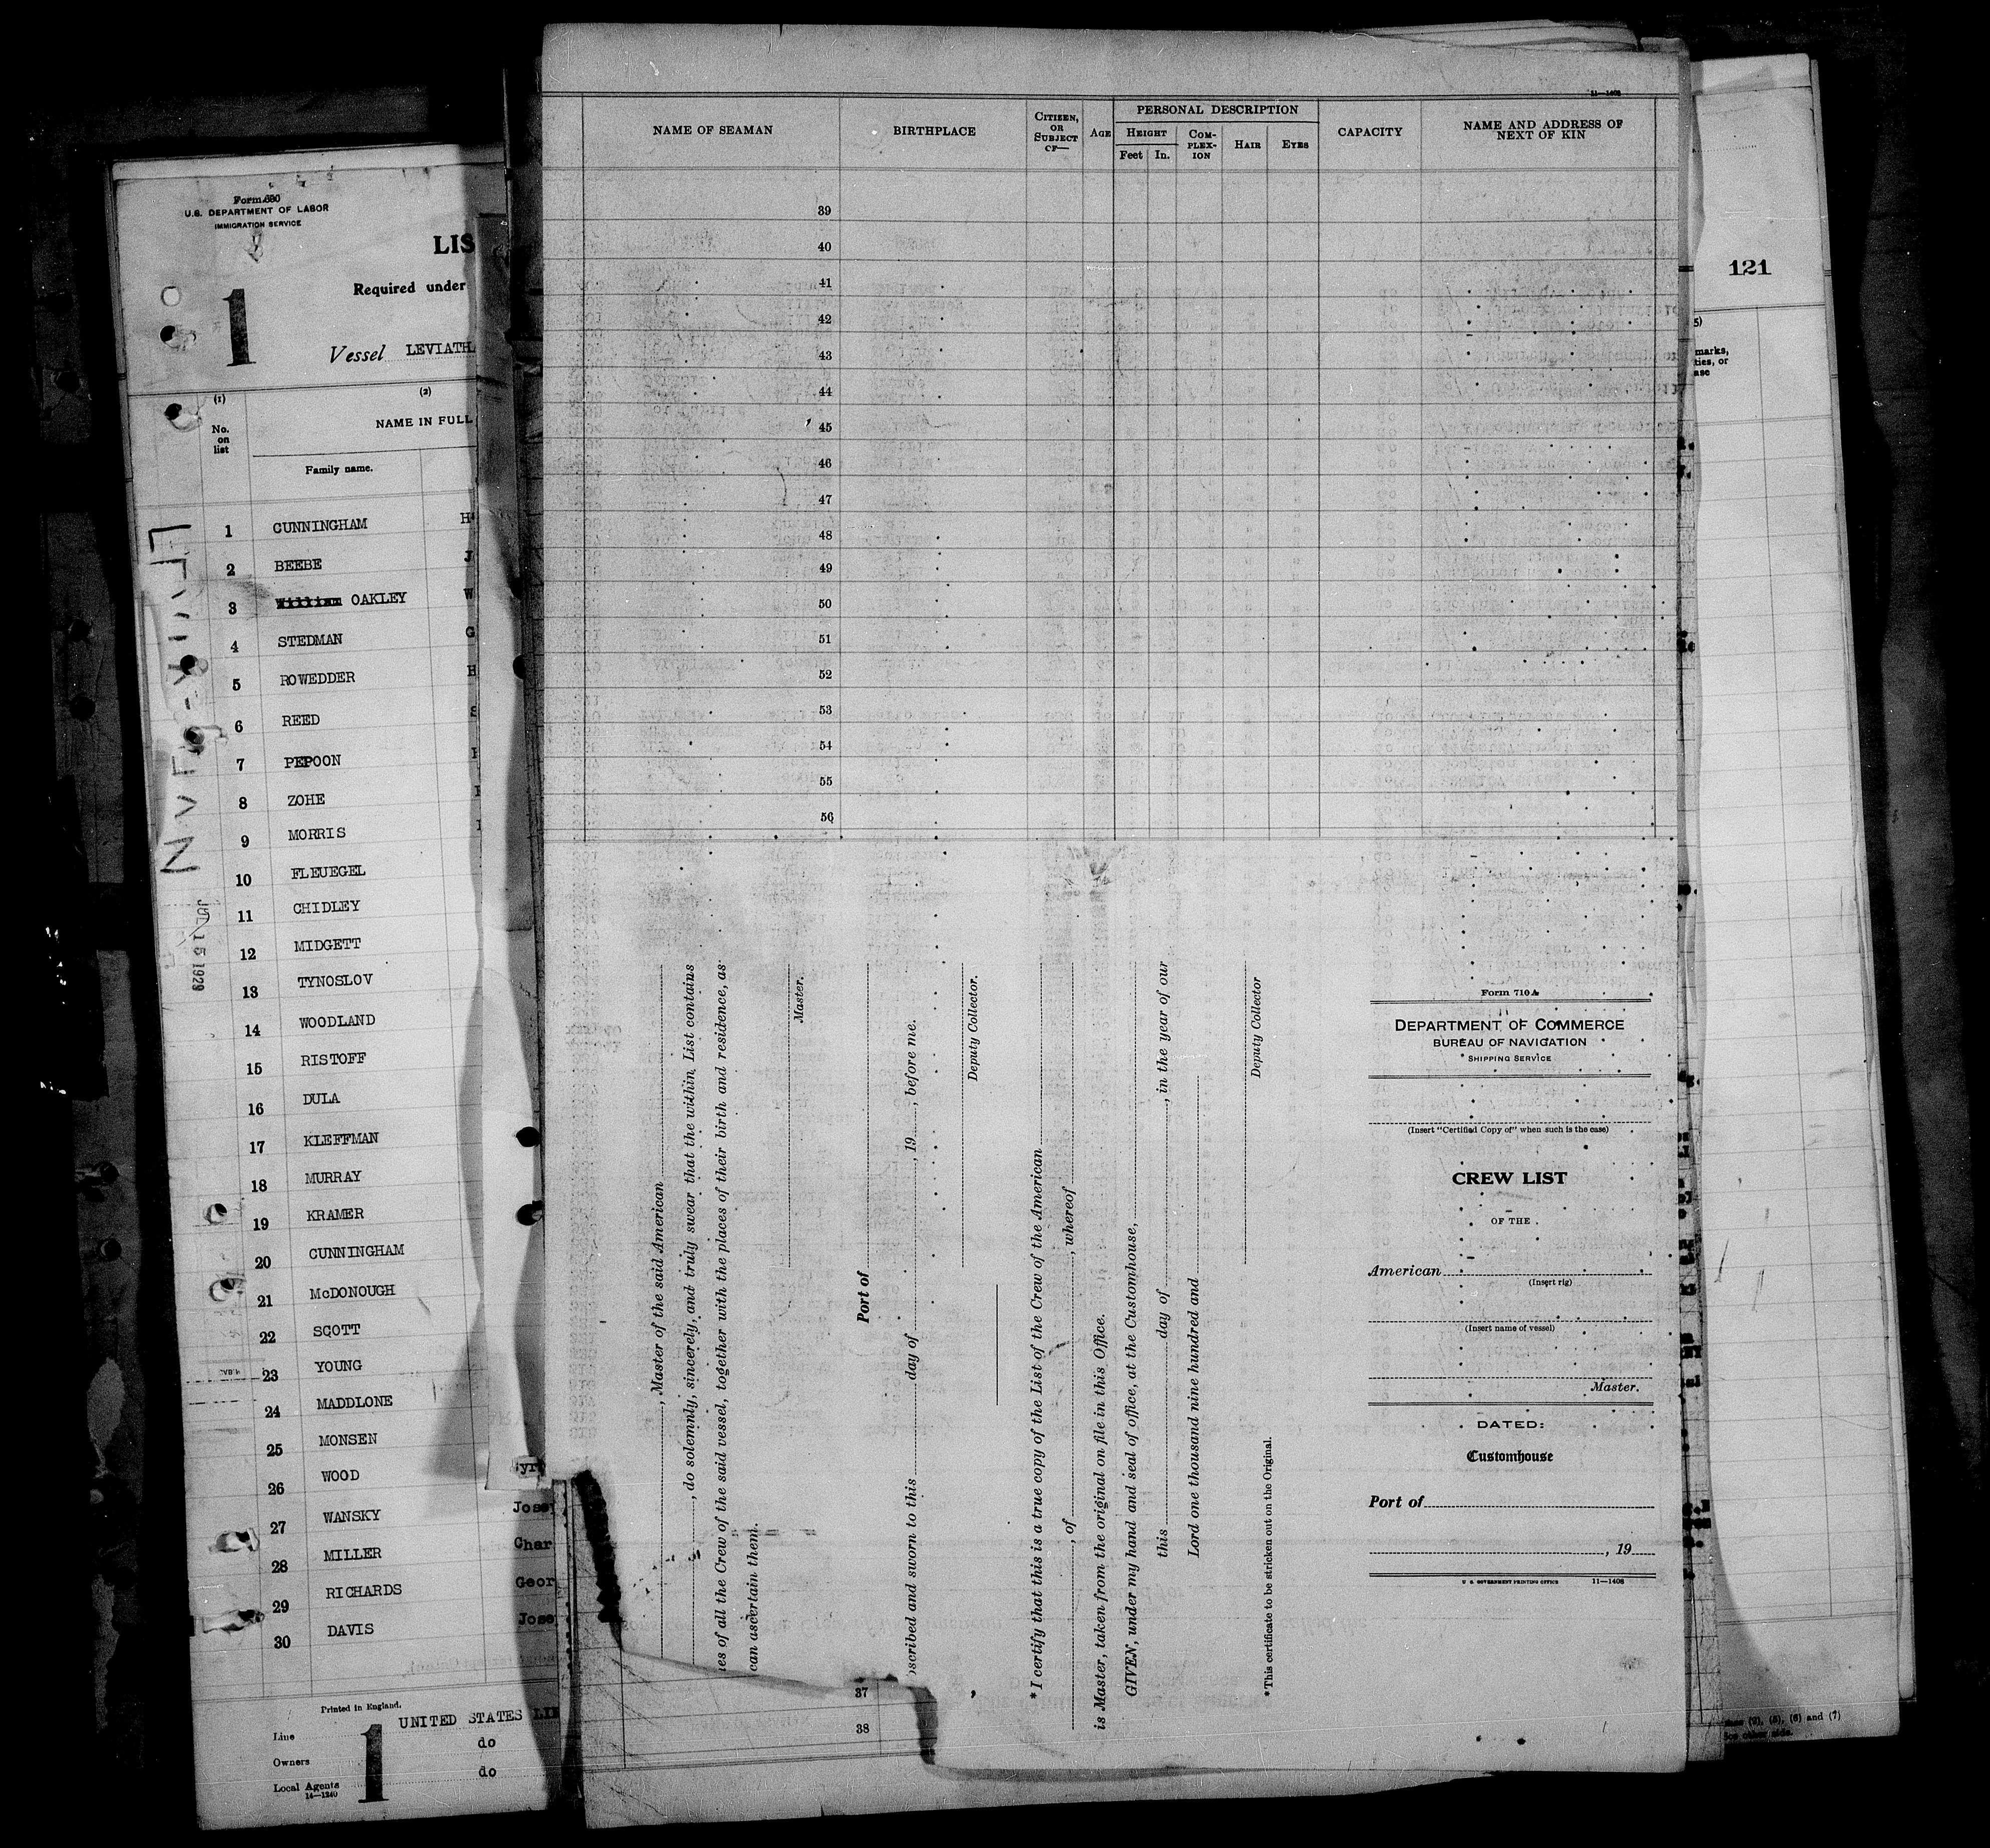 Form 680
U.S. DEPARTMENT OF LABOR
IMMIGRATION SERVICE
LIS
1
Required under
Vessel LEVIATH
(1)
(2)
No.
on
list
NAME IN FULL
Family name.
1 CUNNINGHAM H
2 BEEBE J
3 William OAKLEY W
4 STEDMAN G
5 ROWEDDER H
6 REED S
7 PEPOON
8 ZOHE
9 MORRIS
10 FLEUEGEL
11 CHIDLEY
12 MIDGETT
13 TYNOSLOV
14 WOODLAND
15 RISTOFF
16 DULA
17 KLEFFMAN
18 MURRAY
19 KRAMER
20 CUNNINGHAM
21 McDONOUGH
22 SCOTT
23 YOUNG
24 MADDLONE
25 MONSEN
26 WOOD
27 WANSKY Jose
28 MILLER Char
29 RICHARDS Geor
30 DAVIS Jose
JUL 15 1929
Printed in England.
Line UNITED STATES LIN
Owners do
Local Agents do
14—1240
1
11—1408
NAME OF SEAMAN
BIRTHPLACE
CITIZEN,
OR
SUBJECT
OF—
AGE
PERSONAL DESCRIPTION
HEIGHT
Feet In.
COM-
PLEX-
ION
HAIR
EYES
CAPACITY
NAME AND ADDRESS OF
NEXT OF KIN
39
40
41
42
43
44
45
46
47
48
49
50
51
52
53
54
55
56
, Master of the said American
, do solemnly, sincerely, and truly swear that the within List contains
es of all the Crew of the said vessel, together with the places of their birth and residence, as
can ascertain them.
Master.
Port of
scribed and sworn to this day of , 19 , before me.
Deputy Collector.
* I certify that this is a true copy of the List of the Crew of the American
, of , whereof
is Master, taken from the original on file in this Office.
GIVEN, under my hand and seal of office, at the Customhouse,
this day of , in the year of our
Lord one thousand nine hundred and
Deputy Collector
*This certificate to be stricken out on the Original.
37
38
Form 710 A
DEPARTMENT OF COMMERCE
BUREAU OF NAVIGATION
SHIPPING SERVICE
(Insert "Certified Copy of" when such is the case)
CREW LIST
OF THE
American
(Insert rig)
(Insert name of vessel)
Master.
DATED:
Customhouse
Port of
, 19
U. S. GOVERNMENT PRINTING OFFICE 11—1408
121
5)
marks,
ties, or
ase
(2), (5), (6) and (7)
See other side.